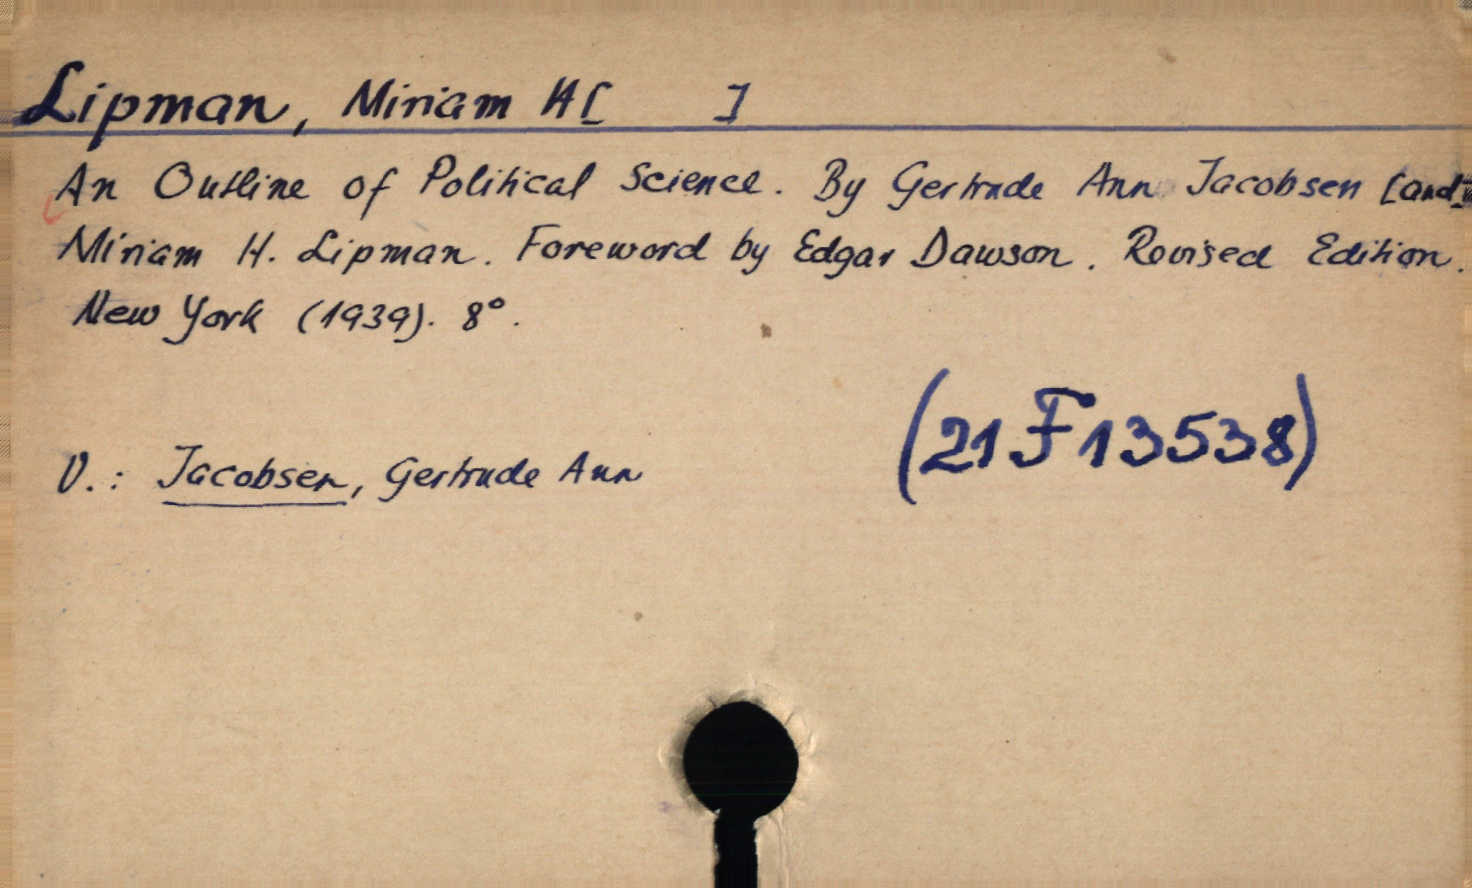 Lipman, Miriam H[ ]
An Outline of Political Science. By Gertrude Ann Jacobsen [and]
Miriam H. Lipman. Foreword by Edgar Dawson. Revised Edition.
New York (1939). 8°.
(21 F 13538)
V.: Jacobsen, Gertrude Ann